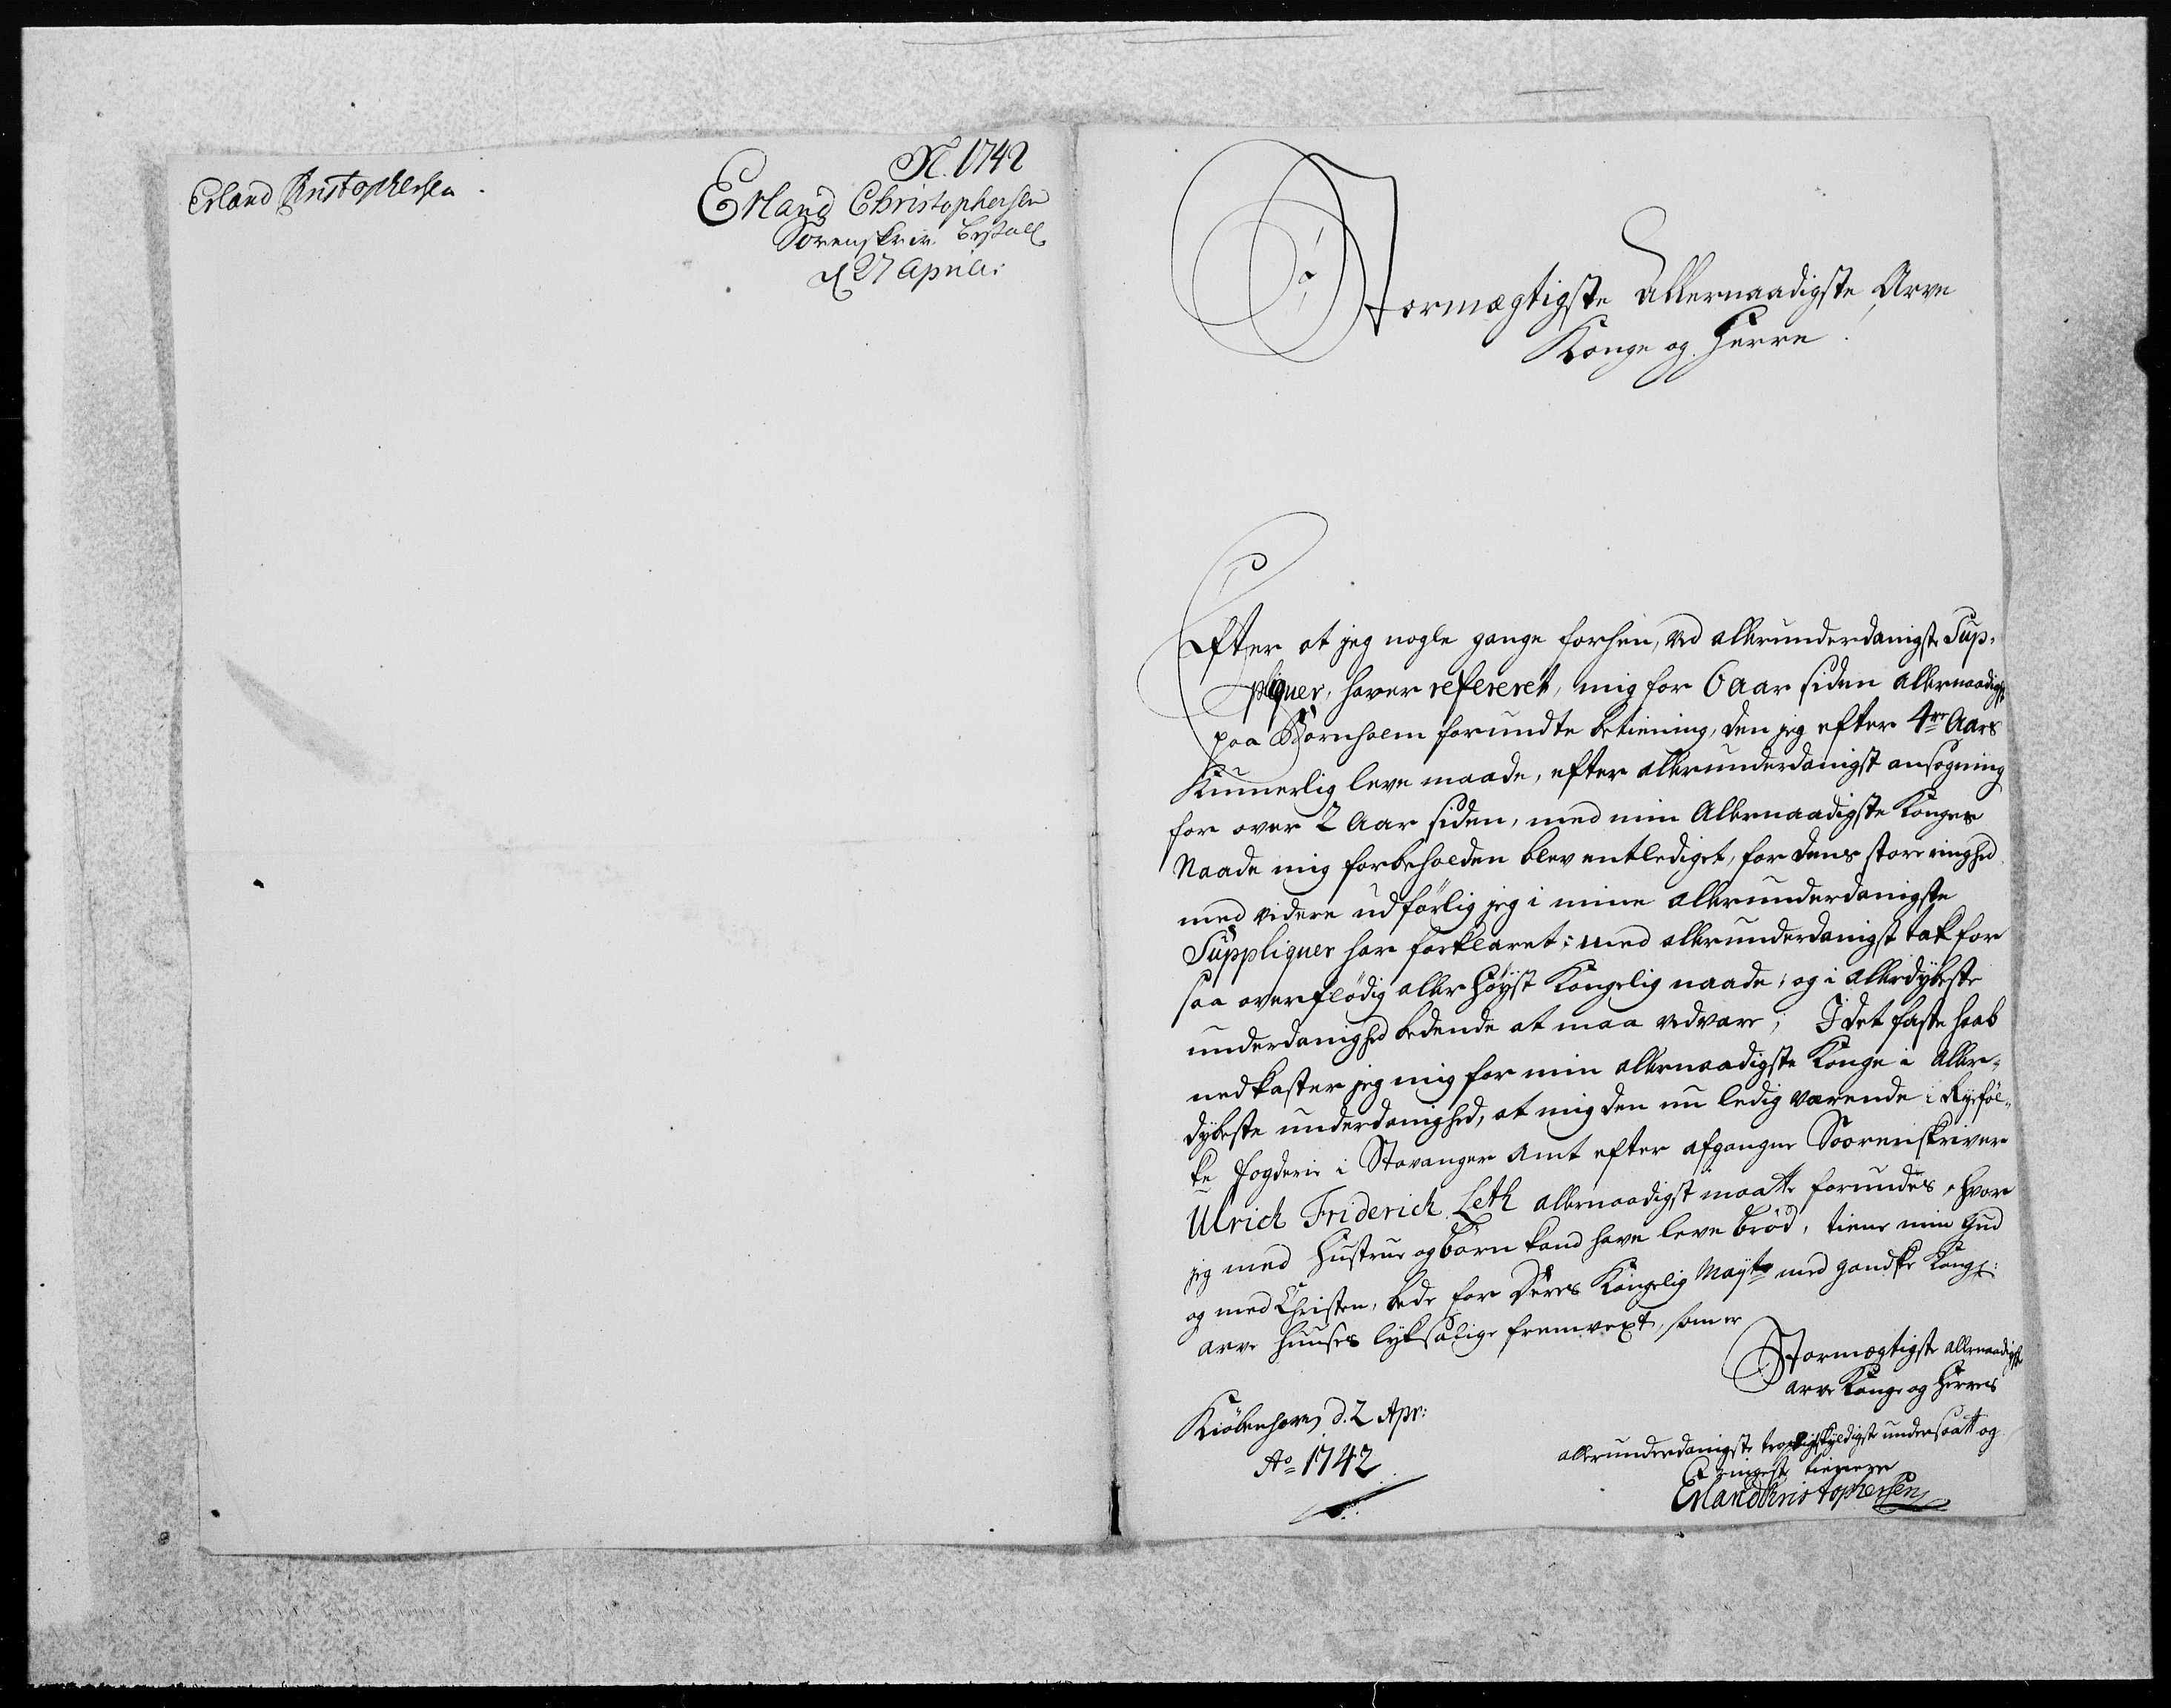 Erland Christophersen.
N. 1742
Erland Christophersen
Sorenskriv. Bestall
d 27 Aprilis
Stormægtigste Allernaadigste Arve
Konge og Herre!
Efter at jeg nogle gange forhen, ved allerunderdanigste Sup-
pliquer, haver refereret, mig for 6 aar siden allernaadigst
paa Bornholm forundte betiening, den jeg efter 4re Aars
Kummerlig leve maade, efter allerunderdanigst ansøgning
for over 2 Aar siden, med min Allernaadigste Konges
Naade mig forbeholden blev entlediget, for dens store ringhed
med videre udførlig jeg i mine allerunderdanigste
Suppliquer har forklaret; med allerunderdanigst tak for
saa overflødig aller Høyst Kongelig naade; og i allerdybeste
underdanighed bedende at maa vedvare; I det faste haab
nedkaster jeg mig for min allernaadigste Konge i Aller-
dybeste underdanighed, at mig den nu ledig værende i Ryeføl-
ke fogderie i Stavanger Amt efter afgangne Soorenskriver
Ulrich Friderich Leth allernaadigst maatte forundes, hvor
jeg med Hustrue og børn kand have leve brød, tiene min Gud
og med Christen, bede for Deres Kongelig Mayts med gandske Kongl:
arve Huuses lyksalige fremvext, som er
Stormægtigste allernaadigste
arve Konge og Herres
Kiøbenhavn d. 2 Apr:
Ao 1742
allerunderdanigste troepligtskyldigste undersaatt og
ringeste tienere
Erland Christophersen